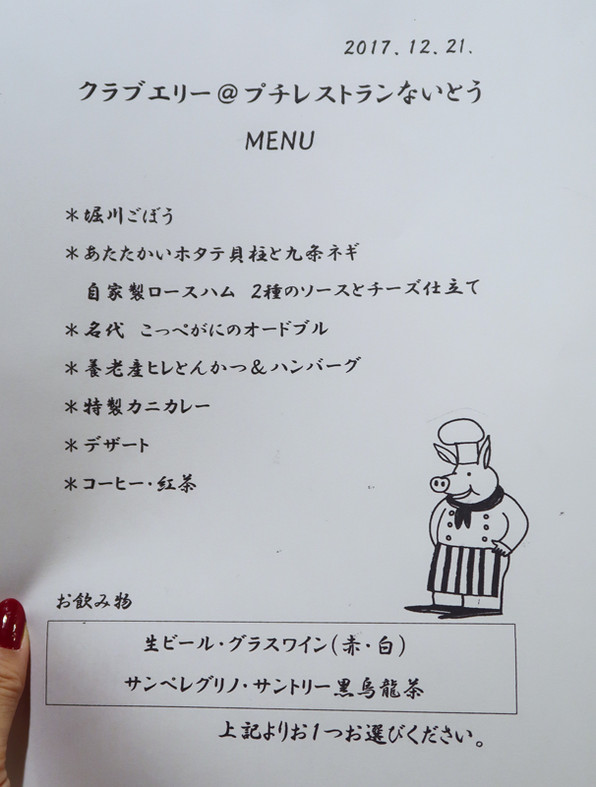 2017.12.21.
クラブエリー@プチレストランないとう
MENU
*堀川ごぼう
*あたたかいホタテ貝柱と九条ネギ
自家製ロースハム 2種のソースとチーズ仕立て
*名代 こっぺがにのオードブル
*養老産ヒレとんかつ&ハンバーグ
*特製カニカレー
*デザート
*コーヒー・紅茶
お飲み物
生ビール・グラスワイン(赤・白)
サンペレグリノ・サントリー黒烏龍茶
上記よりお1つお選びください。